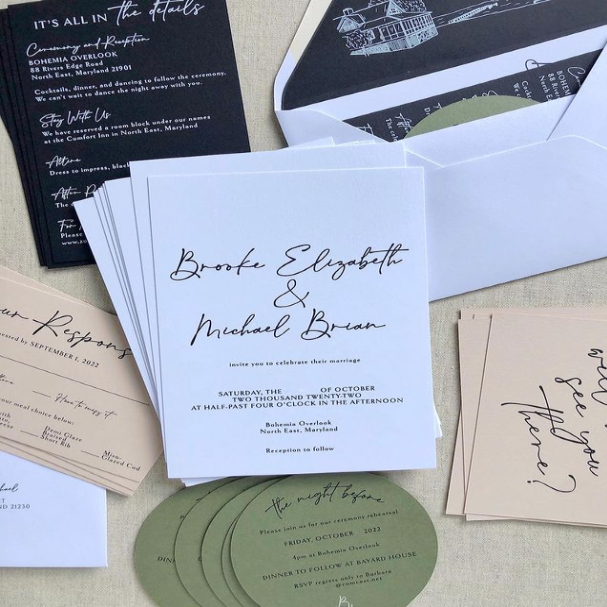 IT'S ALL IN the details
Ceremony and Reception
BOHEMIA OVERLOOK
88 Rivers Edge Road
North East, Maryland 21901
Cocktails, dinner, and dancing to follow the ceremony.
We can't wait to dance the night away with you.
Stay With Us
We have reserved a room block under our names
at the Comfort Inn in North East, Maryland
Attire
Dress to impress, black
After
The
For
Please
www.
BOHEMIA
88 Rivers
North East
Brooke Elizabeth
&
Michael Brian
invite you to celebrate their marriage
SATURDAY, THE OF OCTOBER
TWO THOUSAND TWENTY-TWO
AT HALF-PAST FOUR O'CLOCK IN THE AFTERNOON
Bohemia Overlook
North East, Maryland
Reception to follow
our Respons
by SEPTEMBER 1, 2022
meal choice below:
Demi Glaze
Braised
Short Rib
Miso-
Glazed Cod
21230
see you
there?
the night before
Please join us for our ceremony rehearsal
FRIDAY, OCTOBER 2022
4pm at Bohemia Overlook
DINNER TO FOLLOW AT BAYARD HOUSE
RSVP regrets only to Barbara
@comcast.net